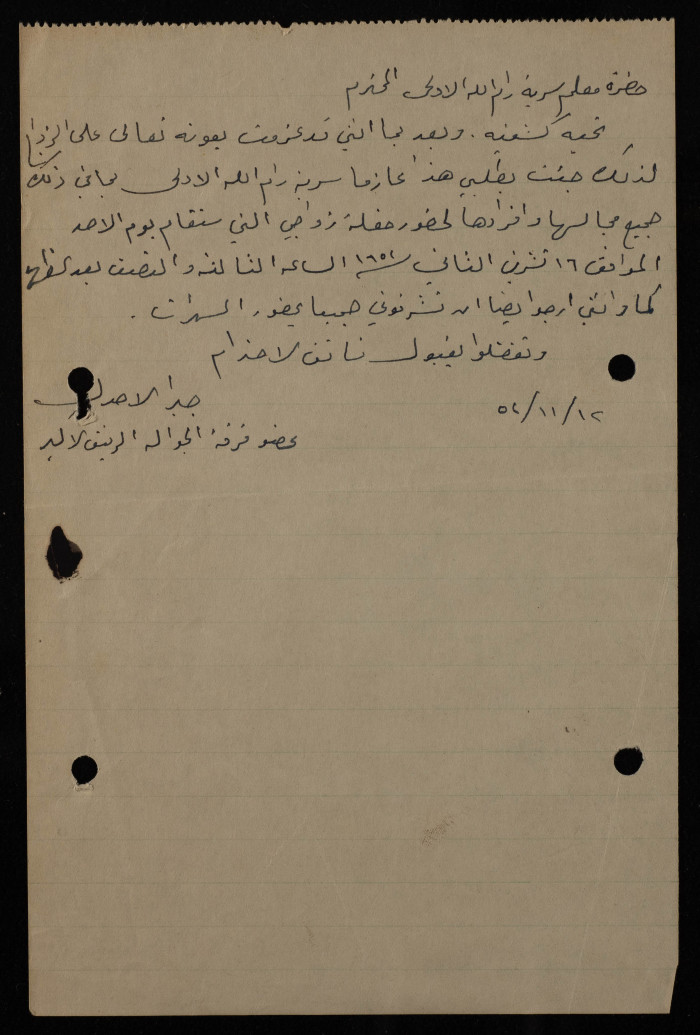 حضرة معلم سرية رام الله الاولى المحترم
تحيه كشفيه . وبعد بما انني قد عزمت بعونه تعالى على الزواج
لذلك جئت بطلبي هذا عازما سرية رام الله الاولى بما في ذلك
جميع مجالسها وافرادها لحضور حفلة زواجي التي ستقام يوم الاحد
الموافق ١٦ تشرين الثاني سنة ١٩٥٢ الساعه الثالثه والنصف بعد الظهر
كما وانني ارجو ايضا ان تشرفوني جميعا بحضور السهرات .
وتفضلوا بقبول فائق الاحترام
١٢/١١/٥٢
عضو فرقة الجواله